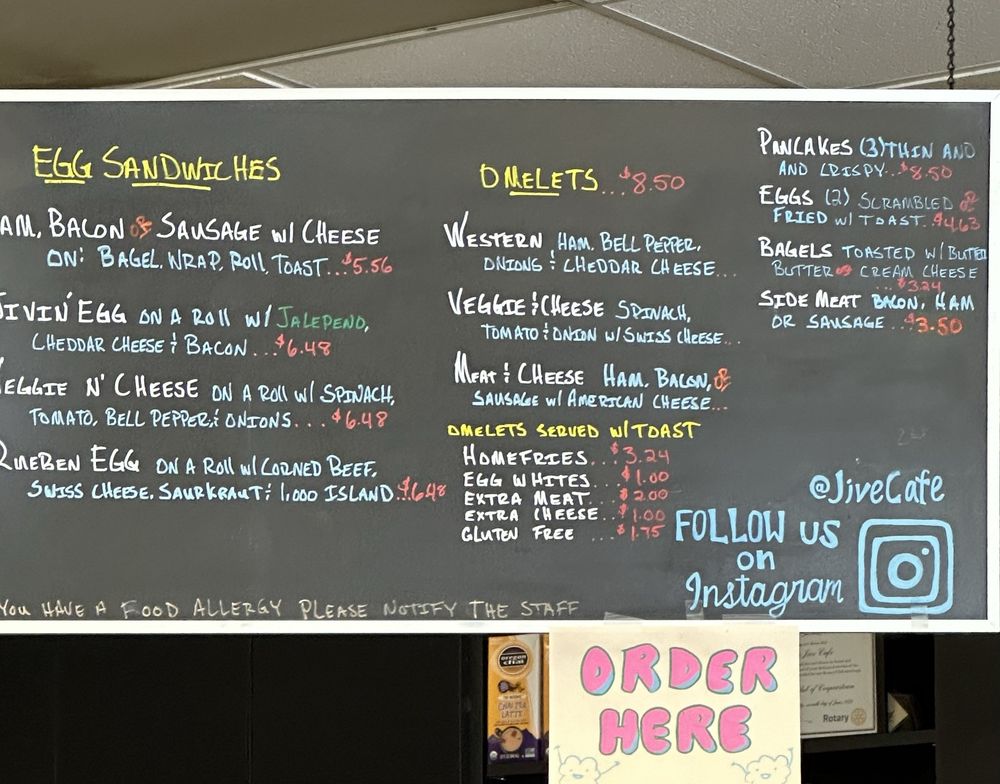 EGG SANDWICHES
AM, BACON or SAUSAGE w/ CHEESE
ON: BAGEL, WRAP, ROLL, TOAST...$5.56
JIVIN' EGG ON A ROLL w/ JALEPENO,
CHEDDAR CHEESE & BACON...$6.48
EGGIE N' CHEESE ON A ROLL w/ SPINACH,
TOMATO, BELL PEPPER & ONIONS...$6.48
RUEBEN EGG ON A ROLL w/ CORNED BEEF,
SWISS CHEESE, SAURKRAUT & 1,000 ISLAND.$6.48
OMELETS...$8.50
WESTERN HAM, BELL PEPPER,
ONIONS & CHEDDAR CHEESE...
VEGGIE & CHEESE SPINACH,
TOMATO & ONION w/ SWISS CHEESE...
MEAT & CHEESE HAM, BACON, or
SAUSAGE w/ AMERICAN CHEESE...
OMELETS SERVED W/TOAST
HOMEFRIES...$3.24
EGG WHITES...$1.00
EXTRA MEAT...$2.00
EXTRA CHEESE...$1.00
GLUTEN FREE ...$1.75
PANCAKES (3) THIN AND
AND CRISPY...$8.50
EGGS (2) SCRAMBLED or
FRIED w/ TOAST.$4.63
BAGELS TOASTED w/ BUTTER
BUTTER or CREAM CHEESE
...$3.24
SIDE MEAT BACON, HAM
OR SAUSAGE...$3.50
@JiveCafe
FOLLOW US
on
Instagram
YOU HAVE A FOOD ALLERGY PLEASE NOTIFY THE STAFF
ORDER
HERE
oregon
chai
CHAI TEA
LATTE
Jive Cafe
Rotary